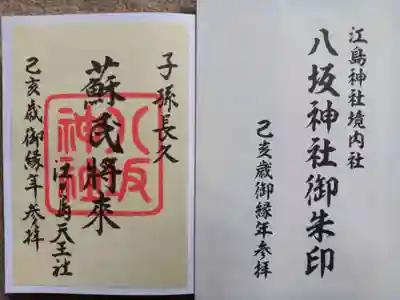 子孫長久
蘇民將来
江の島天王社
己亥歳御縁年参拝
八坂神社
江島神社境内社
八坂神社御朱印
己亥歳御縁年参拝